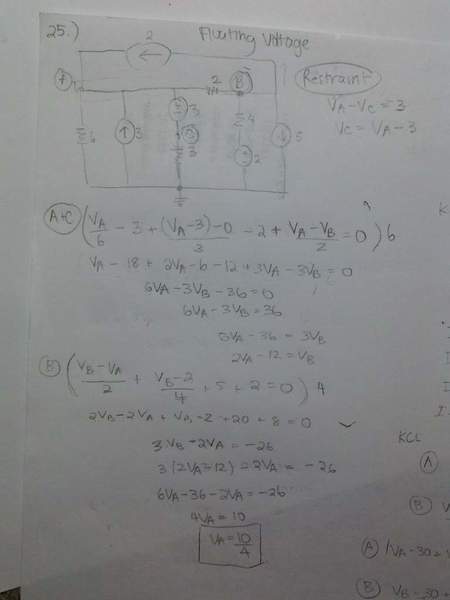 25.) Floating Voltage
2
7 2 B
Restraint
3 4
6 3 3 2 5
VA - VC = 3
VC = VA - 3
A+C ( VA/6 - 3 + (VA-3)-0/3 - 2 + VA-VB/2 = 0 ) 6
VA - 18 + 2VA - 6 - 12 + 3VA - 3VB = 0
6VA - 3VB - 36 = 0
6VA - 3VB = 36
6VA - 36 = 3VB
2VA - 12 = VB
B ( VB-VA/2 + VB-2/4 + 5 + 2 = 0 ) 4
2VB - 2VA + VB - 2 + 20 + 8 = 0
3VB - 2VA = -26
3(2VA-12) - 2VA = -26
6VA - 36 - 2VA = -26
4VA = 10
VA = 10/4
KCL
A
B
A (VA - 30 =
B VB - 30 +